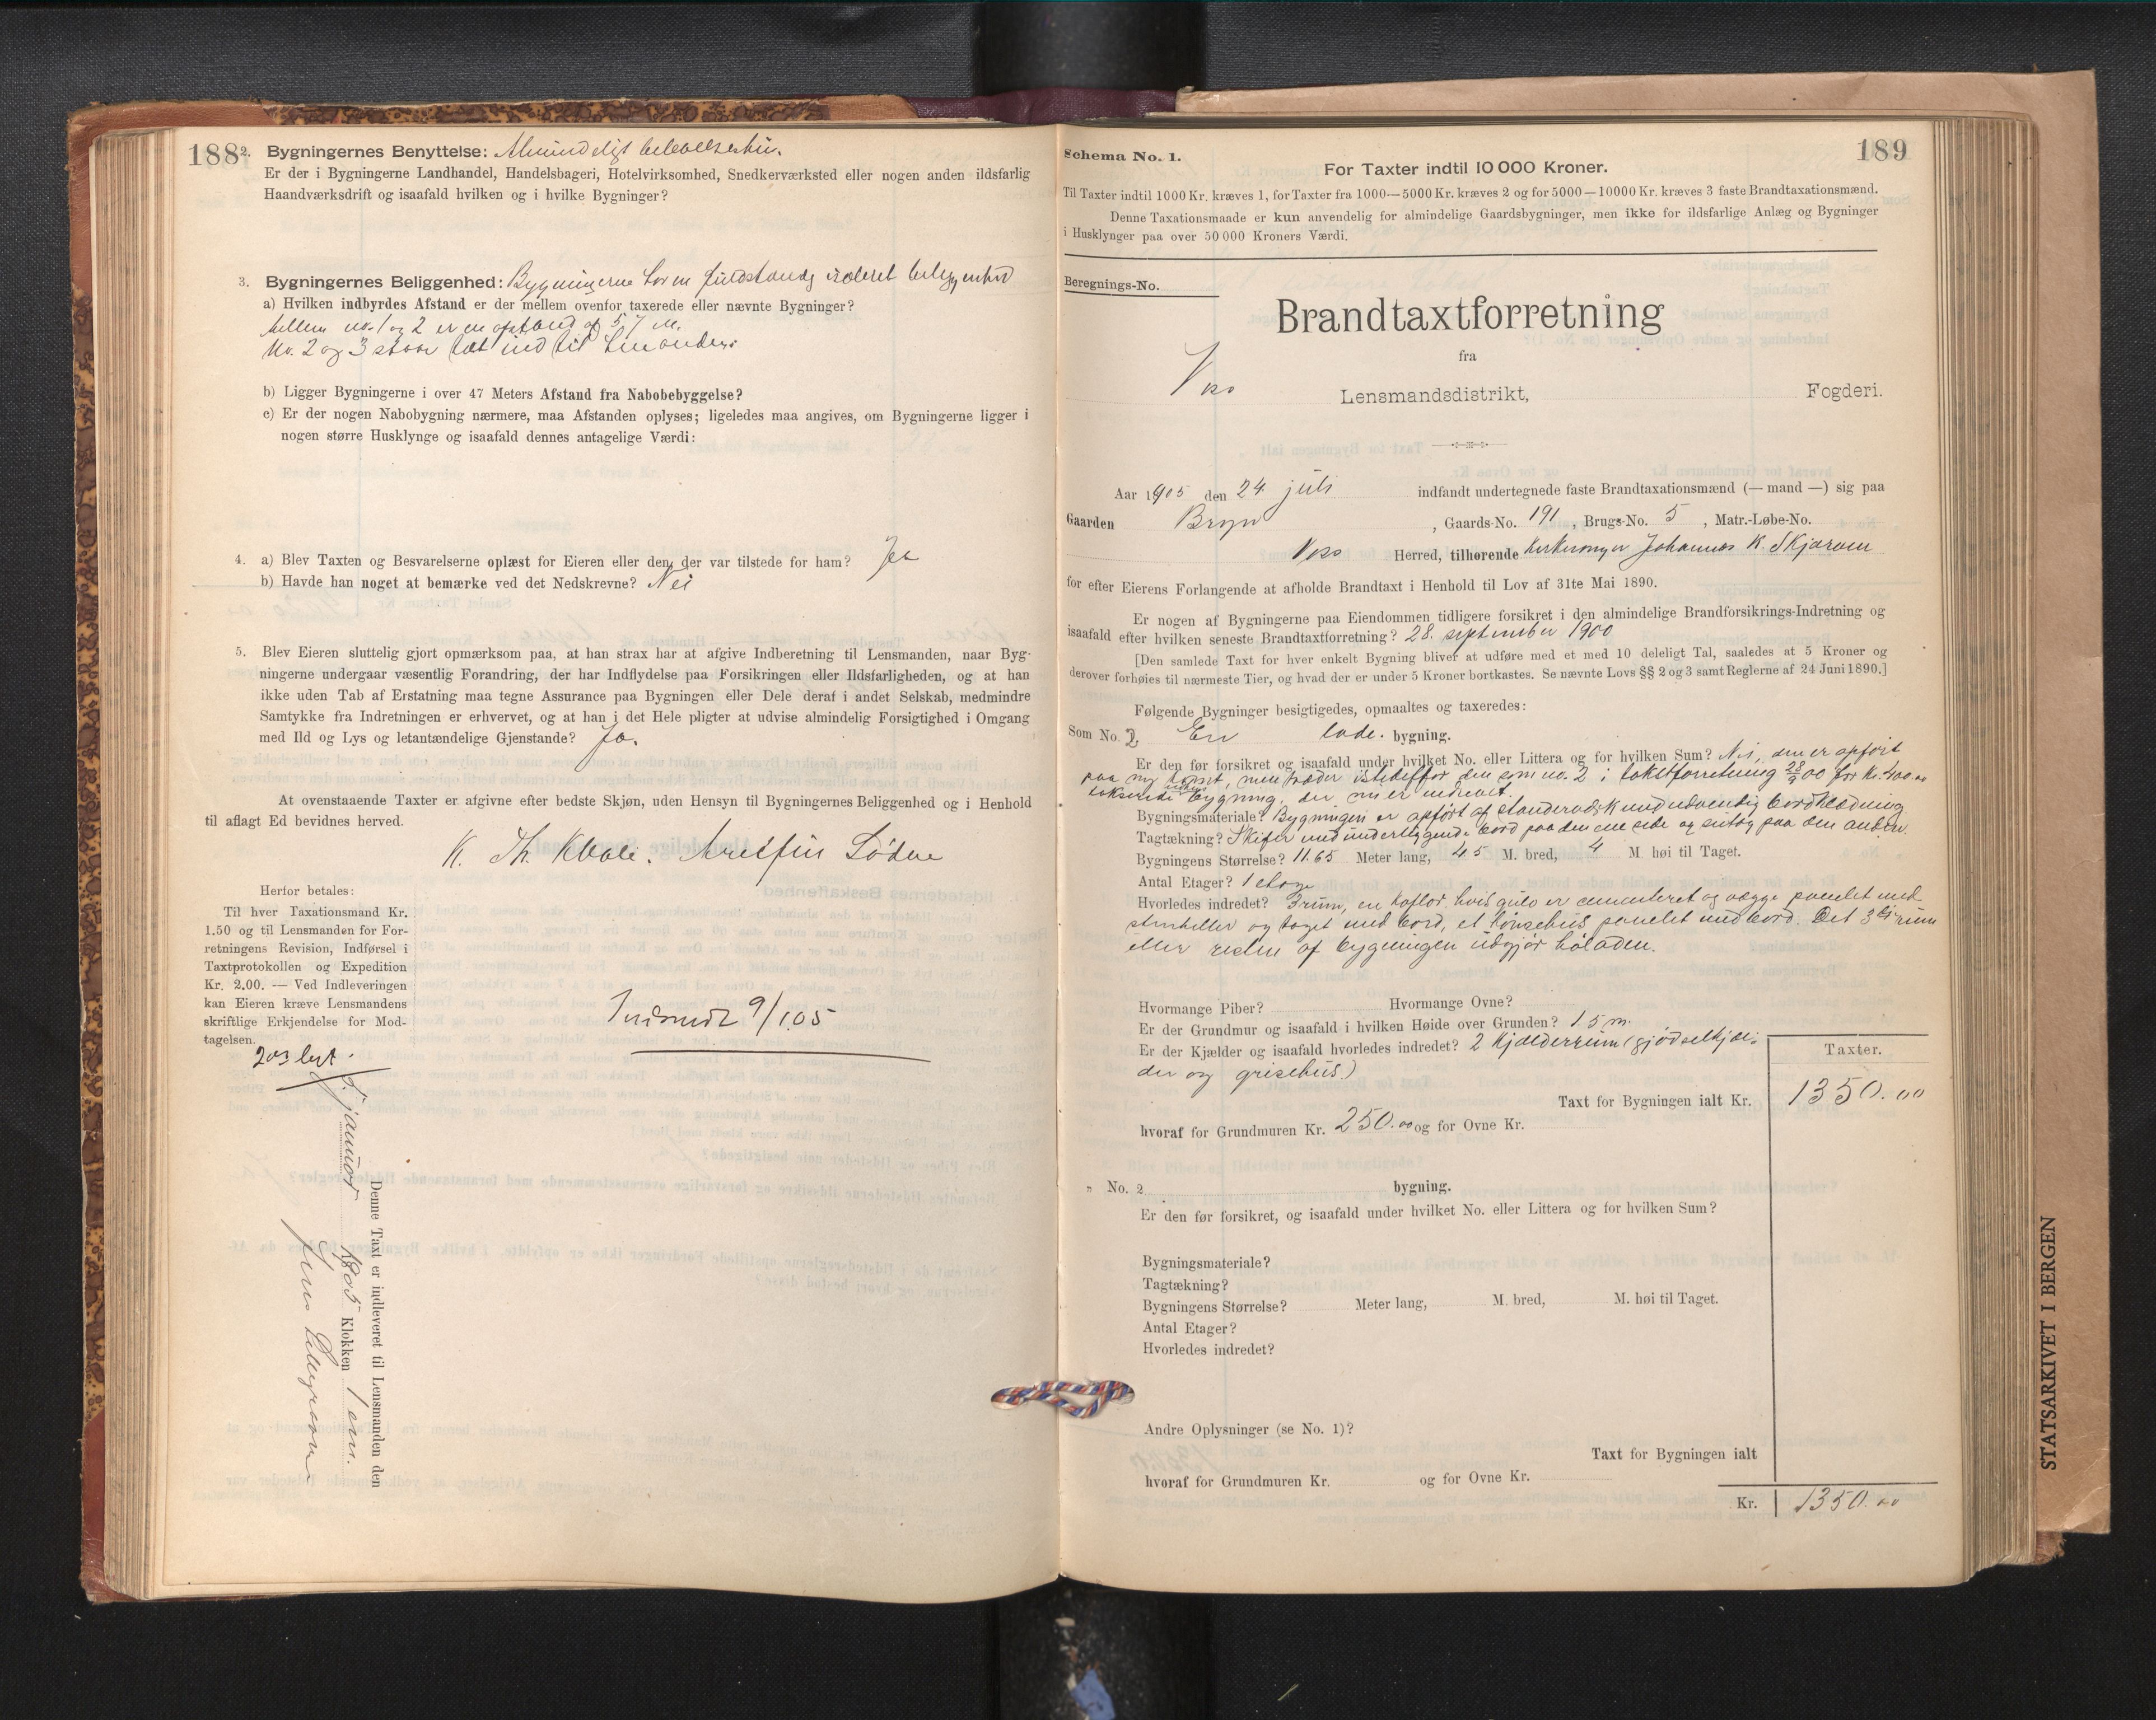 188
2. Bygningernes Benyttelse: Almindeligt beboelseshus.
Er der i Bygningerne Landhandel, Handelsbageri, Hotelvirksomhed, Snedkerværksted eller nogen anden ildsfarlig
Haandværksdrift og isaafald hvilken og i hvilke Bygninger?
3. Bygningernes Beliggenhed: Bygningerne har en fuldstændig isoleret beliggenhed
a) Hvilken indbyrdes Afstand er der mellem ovenfor taxerede eller nævnte Bygninger?
Mellem no. 1 og 2 er en afstand af 57 M.
No. 2 og 3 staar tæt ind til hinanden.
b) Ligger Bygningerne i over 47 Meters Afstand fra Nabobebyggelse?
c) Er der nogen Nabobygning nærmere, maa Afstanden oplyses; ligeledes maa angives, om Bygningerne ligger i
nogen større Husklynge og isaafald dennes antagelige Værdi:
4. a) Blev Taxten og Besvarelserne oplæst for Eieren eller den, der var tilstede for ham? Ja
b) Havde han noget at bemærke ved det Nedskrevne? Nei
5. Blev Eieren sluttelig gjort opmærksom paa, at han strax har at afgive Indberetning til Lensmanden, naar Byg-
ningerne undergaar væsentlig Forandring, der har Indflydelse paa Forsikringen eller Ildsfarligheden, og at han
ikke uden Tab af Erstatning maa tegne Assurance paa Bygningen eller Dele deraf i andet Selskab, medmindre
Samtykke fra Indretningen er erhvervet, og at han i det Hele pligter at udvise almindelig Forsigtighed i Omgang
med Ild og Lys og letantændelige Gjenstande? Ja.
At ovenstaaende Taxter er afgivne efter bedste Skjøn, uden Hensyn til Bygningernes Beliggenhed og i Henhold
til aflagt Ed bevidnes herved.
K. Th. Kvale.
Herfor betales:
Til hver Taxationsmand Kr.
1.50 og til Lensmanden for For-
retningens Revision, Indførsel i
Taxtprotokollen og Expedition
Kr. 2.00. — Ved Indleveringen
kan Eieren kræve Lensmandens
skriftlige Erkjendelse for Mod-
tagelsen.
Indsendt 9/1 05
Denne Taxt er indleveret til Lensmanden den
januar 1905 Klokken 1 em.
189
Schema No. 1.
For Taxter indtil 10 000 Kroner.
Til Taxter indtil 1000 Kr. kræves 1, for Taxter fra 1000—5000 Kr. kræves 2 og for 5000—10000 Kr. kræves 3 faste Brandtaxationsmænd.
Denne Taxationsmaade er kun anvendelig for almindelige Gaardsbygninger, men ikke for ildsfarlige Anlæg og Bygninger
i Husklynger paa over 50 000 Kroners Værdi.
Beregnings-No.
Brandtaxtforretning
fra
Voss Lensmandsdistrikt, Fogderi.
Aar 1905 den 24 juli indfandt undertegnede faste Brandtaxationsmænd (— mand —) sig paa
Gaarden Bryn, Gaards-No. 191, Brugs-No. 5, Matr.-Løbe-No.
Voss Herred, tilhørende Kirkesanger Johannes K. Skjerven
for efter Eierens Forlangende at afholde Brandtaxt i Henhold til Lov af 31te Mai 1890.
Er nogen af Bygningerne paa Eiendommen tidligere forsikret i den almindelige Brandforsikrings-Indretning og
isaafald efter hvilken seneste Brandtaxtforretning? 28. september 1900
[Den samlede Taxt for hver enkelt Bygning bliver at udføre med et med 10 deleligt Tal, saaledes at 5 Kroner og
derover forhøies til nærmeste Tier, og hvad der er under 5 Kroner bortkastes. Se nævnte Lovs §§ 2 og 3 samt Reglerne af 24 Juni 1890.]
Følgende Bygninger besigtigedes, opmaaltes og taxeredes:
Som No. 2. En lade. bygning.
Er den før forsikret og isaafald under hvilket No. eller Littera og for hvilken Sum? Nei, den er opført
paa ny tomt, men træder istedetfor den som no. 2 i takstforretning 28/9 00 for Kr. 400.00
takserede bygning, der nu er nedrevet.
Bygningsmateriale? Bygningen er opført af standerværk med udvendig bordklædning
Tagtækning? Skifer med underliggende bord paa den ene side og paa den anden.
Bygningens Størrelse? 11.65 Meter lang, 4.5 M. bred, 4 M. høi til Taget.
Antal Etager? 1 etage
Hvorledes indredet? 3 rum, en koflor, hvis gulv er cementeret og vægge panelet med
stenheller og taget med bord, et hønsehus panelet med bord. Det 3die rum
eller resten af bygningen udgjør høladen.
Hvormange Piber? Hvormange Ovne?
Er der Grundmur og isaafald i hvilken Høide over Grunden? 1.5 m.
Er der Kjælder og isaafald hvorledes indredet? 2 Kjælderrum (gjødselkjæl-
der og grisehus.)
Taxter.
Taxt for Bygningen ialt Kr. 1350.00
hvoraf for Grundmuren Kr. 250.00 og for Ovne Kr.
" No. 2 bygning.
Er den før forsikret, og isaafald under hvilket No. eller Littera og for hvilken Sum?
Bygningsmateriale?
Tagtækning?
Bygningens Størrelse? Meter lang, M. bred, M. høi til Taget.
Antal Etager?
Hvorledes indredet?
Andre Oplysninger (se No. 1)?
Taxt for Bygningen ialt
hvoraf for Grundmuren Kr. og for Ovne Kr.
Kr. 1350.00
STATSARKIVET I BERGEN